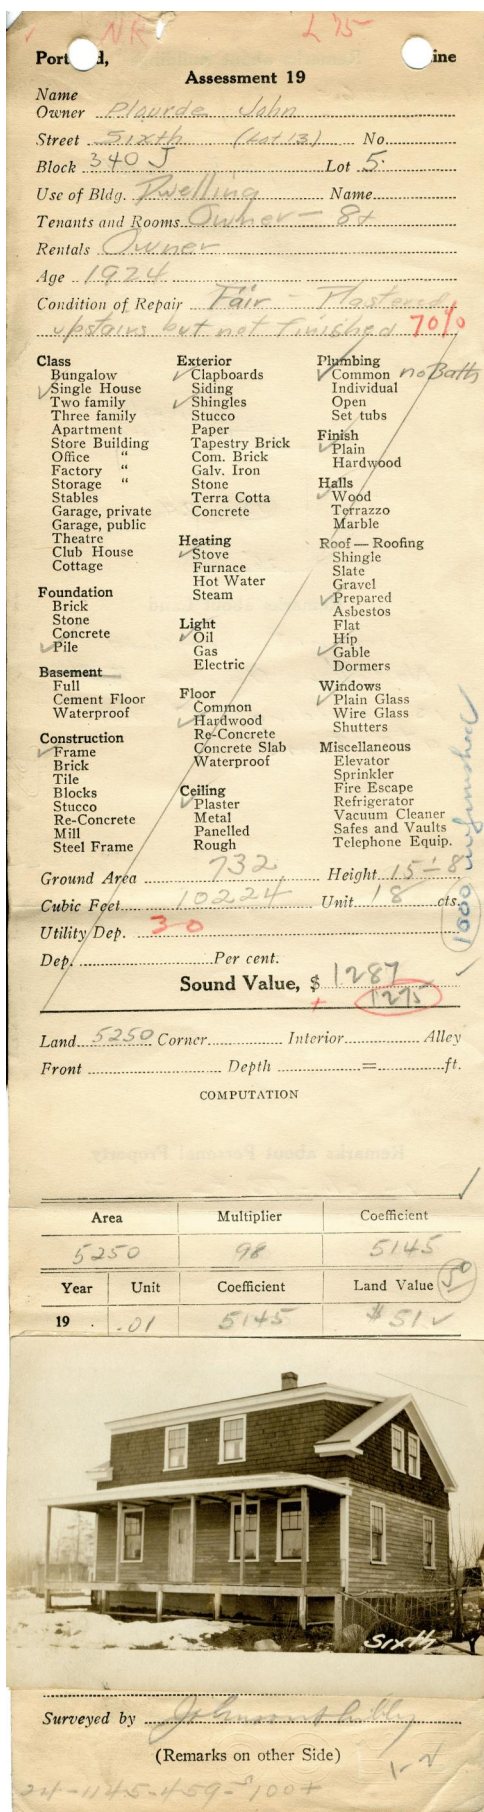 NR L 75
Portland, Maine
Assessment 19
Name
Owner Plourde John
Street Sixth (Lot 13) No.
Block 340 J Lot 5
Use of Bldg. Dwelling Name
Tenants and Rooms Owner - 8+
Rentals Owner
Age 1924
Condition of Repair Fair - Plastered
upstairs but not finished 70%
Class
Bungalow
✓ Single House
Two family
Three family
Apartment
Store Building
Office "
Factory "
Storage "
Stables
Garage, private
Garage, public
Theatre
Club House
Cottage
Foundation
Brick
Stone
Concrete
✓ Pile
Basement
Full
Cement Floor
Waterproof
Construction
✓ Frame
Brick
Tile
Blocks
Stucco
Re-Concrete
Mill
Steel Frame
Exterior
✓ Clapboards
Siding
✓ Shingles
Stucco
Paper
Tapestry Brick
Com. Brick
Galv. Iron
Stone
Terra Cotta
Concrete
Heating
✓ Stove
Furnace
Hot Water
Steam
Light
✓ Oil
Gas
Electric
Floor
Common
✓ Hardwood
Re-Concrete
Concrete Slab
Waterproof
Ceiling
✓ Plaster
Metal
Panelled
Rough
Plumbing
✓ Common no Bath
Individual
Open
Set tubs
Finish
✓ Plain
Hardwood
Halls
✓ Wood
Terrazzo
Marble
Roof — Roofing
Shingle
Slate
Gravel
✓ Prepared
Asbestos
Flat
Hip
✓ Gable
Dormers
Windows
✓ Plain Glass
Wire Glass
Shutters
Miscellaneous
Elevator
Sprinkler
Fire Escape
Refrigerator
Vacuum Cleaner
Safes and Vaults
Telephone Equip.
1000 unfinished
Ground Area 732 Height 15-8
Cubic Feet 10224 Unit 18 cts.
Utility Dep. 30
Dep. Per cent.
Sound Value, $ 1287 ✓
+ 1275
Land 5250 Corner Interior Alley
Front Depth = ft.
COMPUTATION
Area Multiplier Coefficient
5250 98 5145
Year Unit Coefficient Land Value 50
19 .01 5145 $51 ✓
Sixth
Surveyed by
(Remarks on other Side)
1-2
24-1145-459-$100+